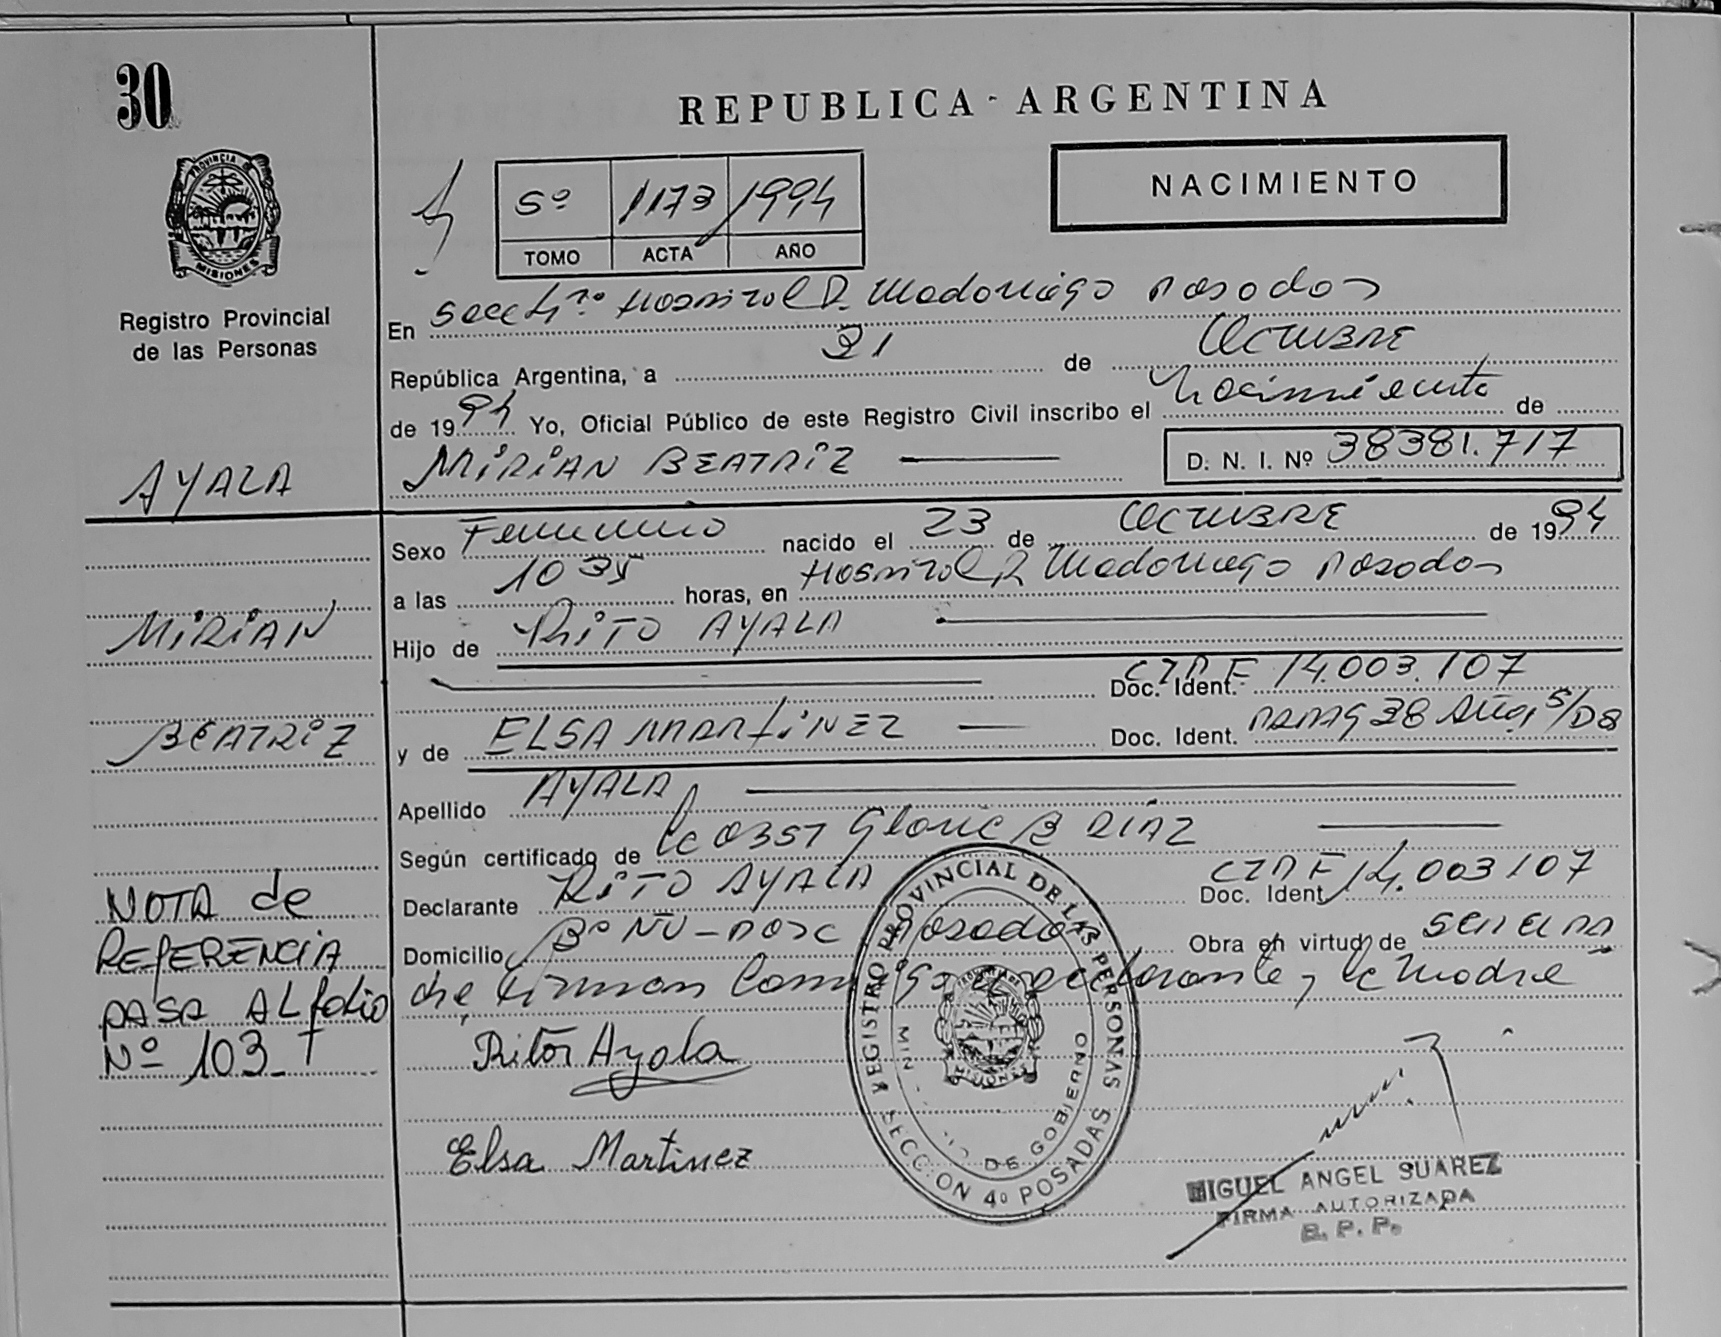 30
REPUBLICA - ARGENTINA
PROVINCIA
MISIONES
5º 1173 1994
TOMO ACTA AÑO
NACIMIENTO
Registro Provincial
de las Personas
En Secc 4ª Hospital R. Madariaga Posadas
República Argentina, a 31 de OCTUBRE
de 1994 Yo, Oficial Público de este Registro Civil inscribo el Nacimiento de
MIRIAN BEATRIZ
D. N. I. Nº 38381.717
AYALA
Sexo Femenino nacido el 23 de OCTUBRE de 1994
a las 10 35 horas, en Hospital R Madariaga Posadas
MIRIAN
Hijo de RITO AYALA
Doc. Ident. 14.003.107
BEATRIZ
y de ELSA MARTINEZ Doc. Ident. 38 Años S/D
Apellido AYALA
Según certificado de la OBST Glori B DIAZ
Declarante RITO AYALA Doc. Ident 14.003107
Domicilio Bº ÑU-PORA Posadas Obra en virtud de SER EL PA
dre, firman conmigo el declarante y la Madre
NOTA de
REFERENCIA
PASA AL folio
Nº 103
Ritor Ayala
Elsa Martinez
REGISTRO PROVINCIAL DE LAS PERSONAS
MIN DE GOBIERNO
PROVINCIA
MISIONES
SECCION 4º POSADAS
MIGUEL ANGEL SUAREZ
FIRMA AUTORIZADA
R. P. P.